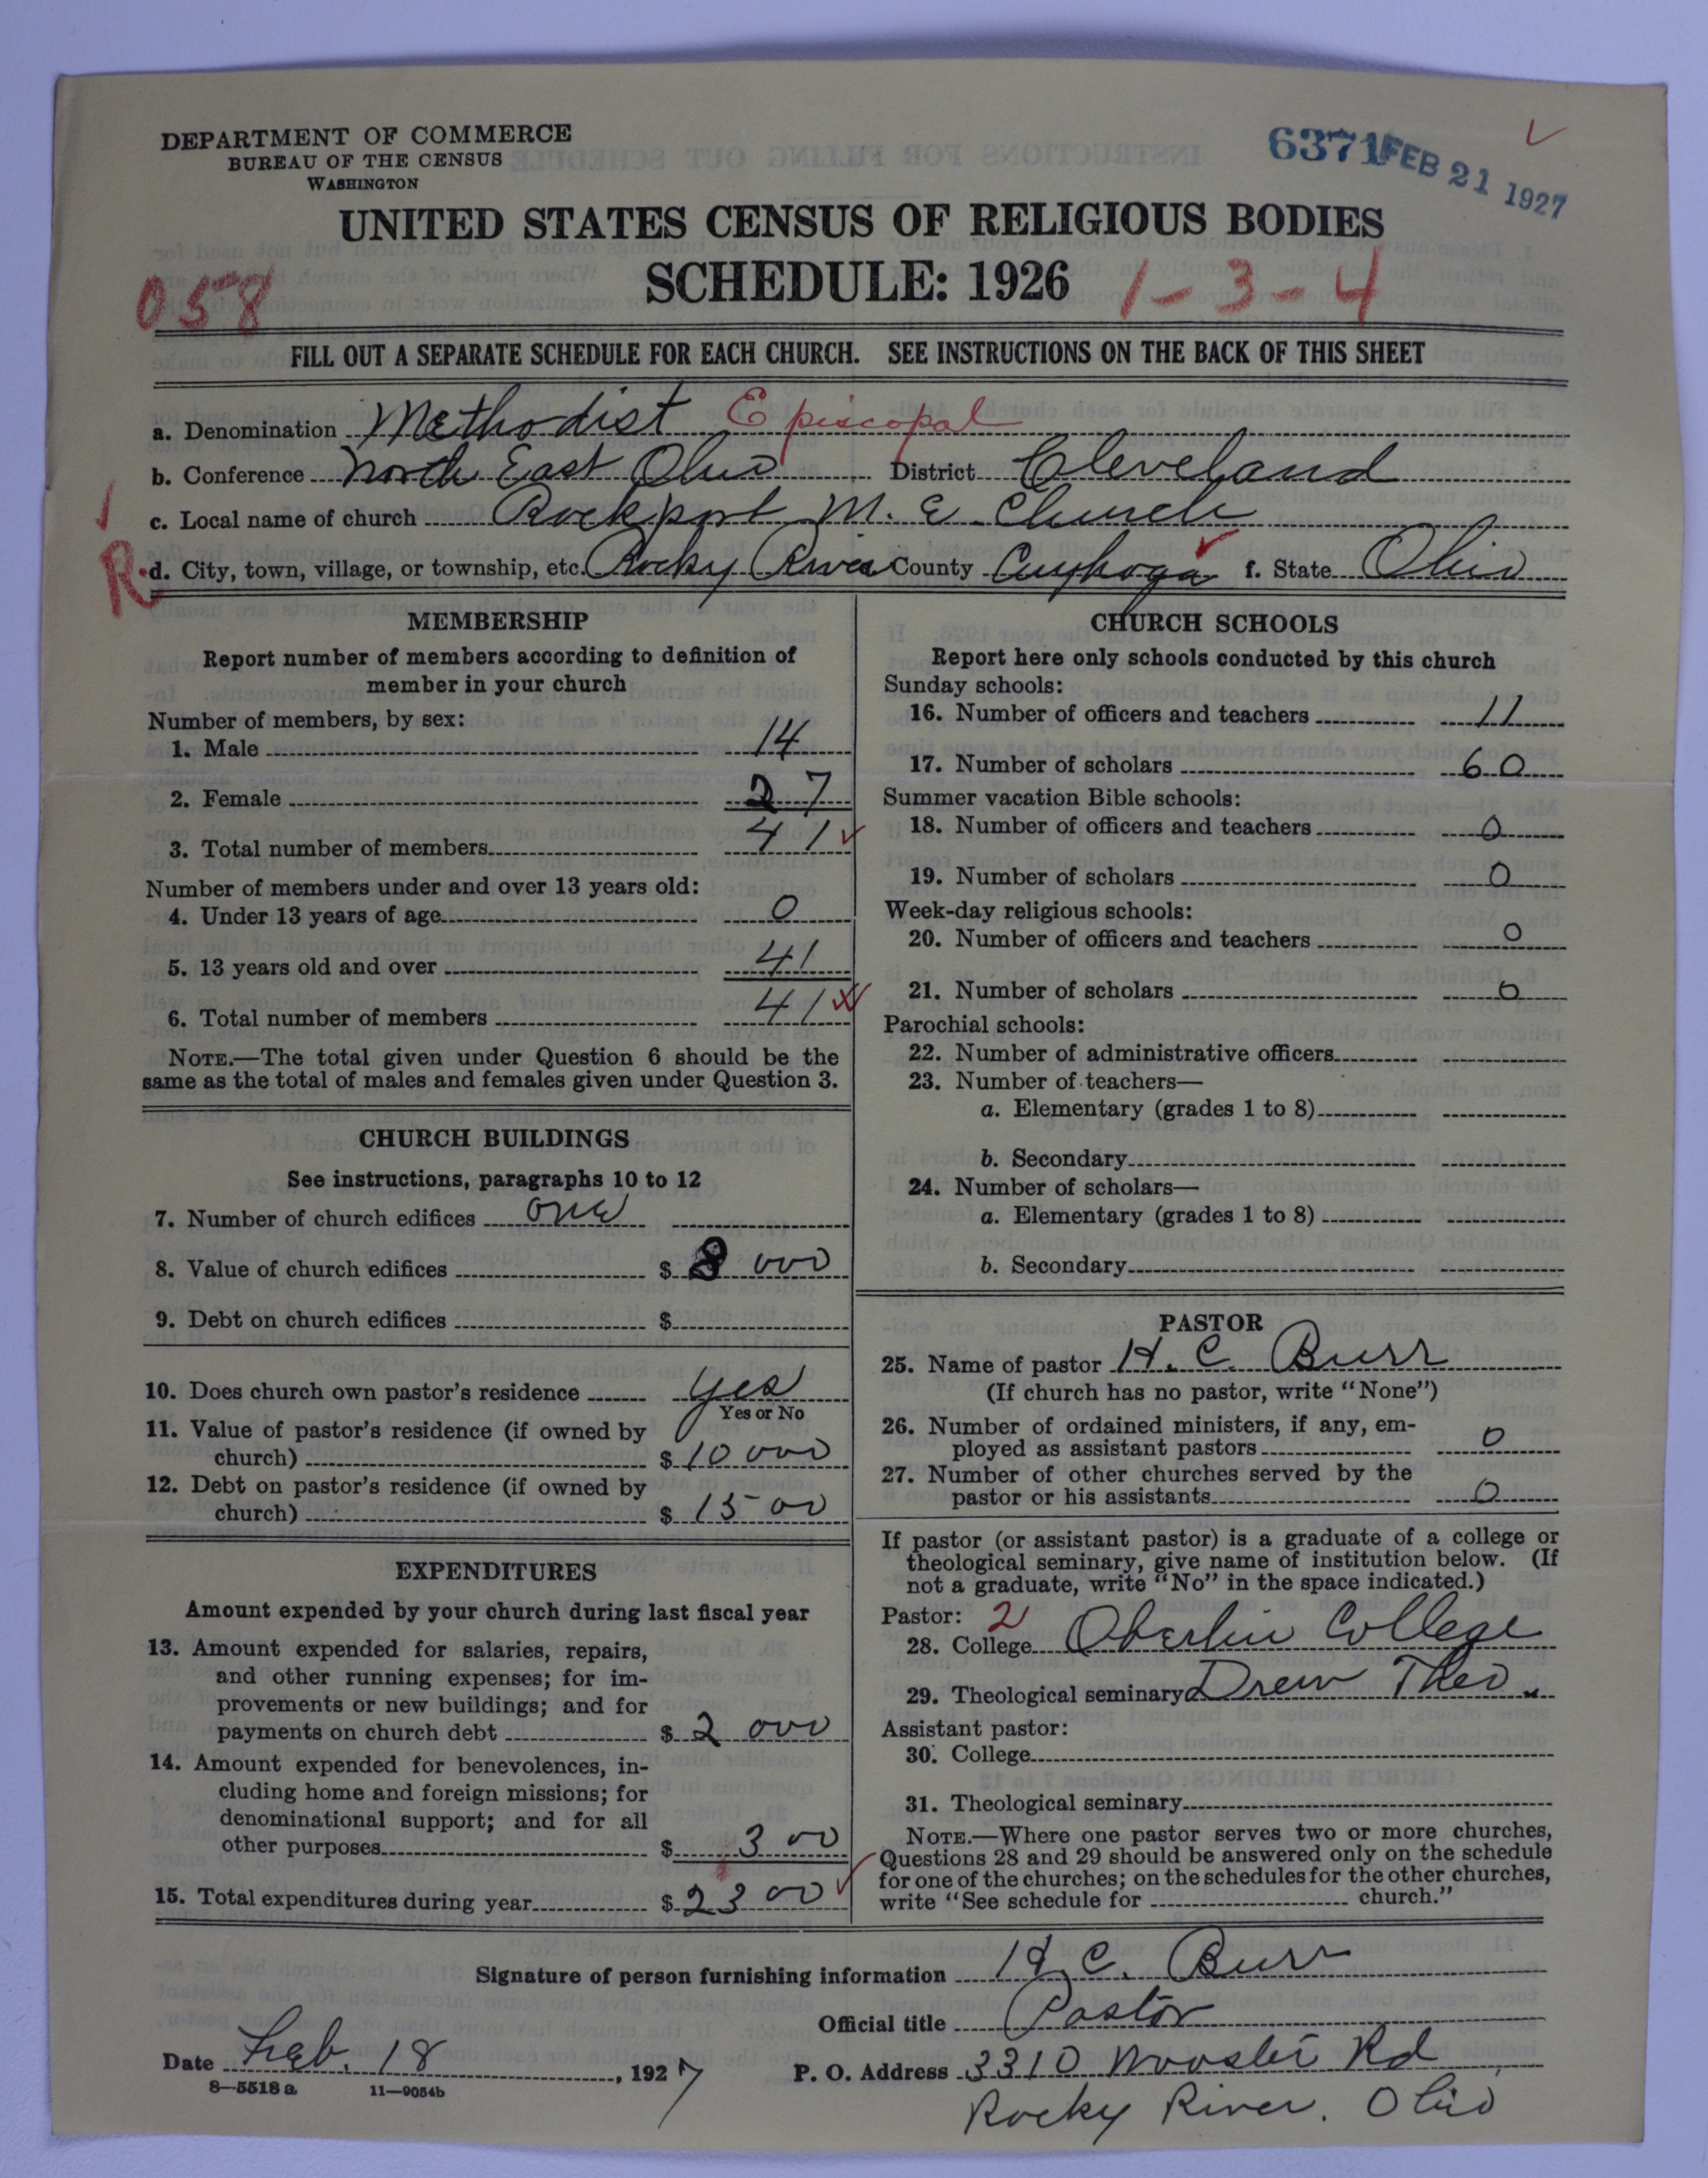 DEPARTMENT OF COMMERCE
BUREAU OF THE CENSUS
WASHINGTON
6371 FEB 21 1927
UNITED STATES CENSUS OF RELIGIOUS BODIES
SCHEDULE: 1926
058
1-3-4
FILL OUT A SEPARATE SCHEDULE FOR EACH CHURCH. SEE INSTRUCTIONS ON THE BACK OF THIS SHEET
a. Denomination Methodist Episcopal
b. Conference North East Ohio District Cleveland
c. Local name of church Rockport M. E. Church
R. d. City, town, village, or township, etc. Rocky River County Cuyhoga f. State Ohio
MEMBERSHIP
Report number of members according to definition of
member in your church
Number of members, by sex:
1. Male 14
2. Female 27
3. Total number of members 41
Number of members under and over 13 years old:
4. Under 13 years of age 0
5. 13 years old and over 41
6. Total number of members 41
NOTE.—The total given under Question 6 should be the
same as the total of males and females given under Question 3.
CHURCH BUILDINGS
See instructions, paragraphs 10 to 12
7. Number of church edifices one
8. Value of church edifices $ 8 000
9. Debt on church edifices $
10. Does church own pastor's residence yes
Yes or No
11. Value of pastor's residence (if owned by
church) $ 10 000
12. Debt on pastor's residence (if owned by
church) $ 15 00
EXPENDITURES
Amount expended by your church during last fiscal year
13. Amount expended for salaries, repairs,
and other running expenses; for im-
provements or new buildings; and for
payments on church debt $ 2 000
14. Amount expended for benevolences, in-
cluding home and foreign missions; for
denominational support; and for all
other purposes $ 3 00
15. Total expenditures during year $ 23 00
CHURCH SCHOOLS
Report here only schools conducted by this church
Sunday schools:
16. Number of officers and teachers 11
17. Number of scholars 60
Summer vacation Bible schools:
18. Number of officers and teachers 0
19. Number of scholars 0
Week-day religious schools:
20. Number of officers and teachers 0
21. Number of scholars 0
Parochial schools:
22. Number of administrative officers
23. Number of teachers—
a. Elementary (grades 1 to 8)
b. Secondary
24. Number of scholars—
a. Elementary (grades 1 to 8)
b. Secondary
PASTOR
25. Name of pastor H. C. Burr
(If church has no pastor, write "None")
26. Number of ordained ministers, if any, em-
ployed as assistant pastors 0
27. Number of other churches served by the
pastor or his assistants 0
If pastor (or assistant pastor) is a graduate of a college or
theological seminary, give name of institution below. (If
not a graduate, write "No" in the space indicated.)
Pastor: 2
28. College Oberlin College
29. Theological seminary Drew Theo.
Assistant pastor:
30. College
31. Theological seminary
NOTE.—Where one pastor serves two or more churches,
Questions 28 and 29 should be answered only on the schedule
for one of the churches; on the schedules for the other churches,
write "See schedule for church."
Signature of person furnishing information H. C. Burr
Official title Pastor
Date Feb. 18, 1927
P. O. Address 3310 Wooster Rd
Rocky River, Ohio
8—5518 a 11—9054b